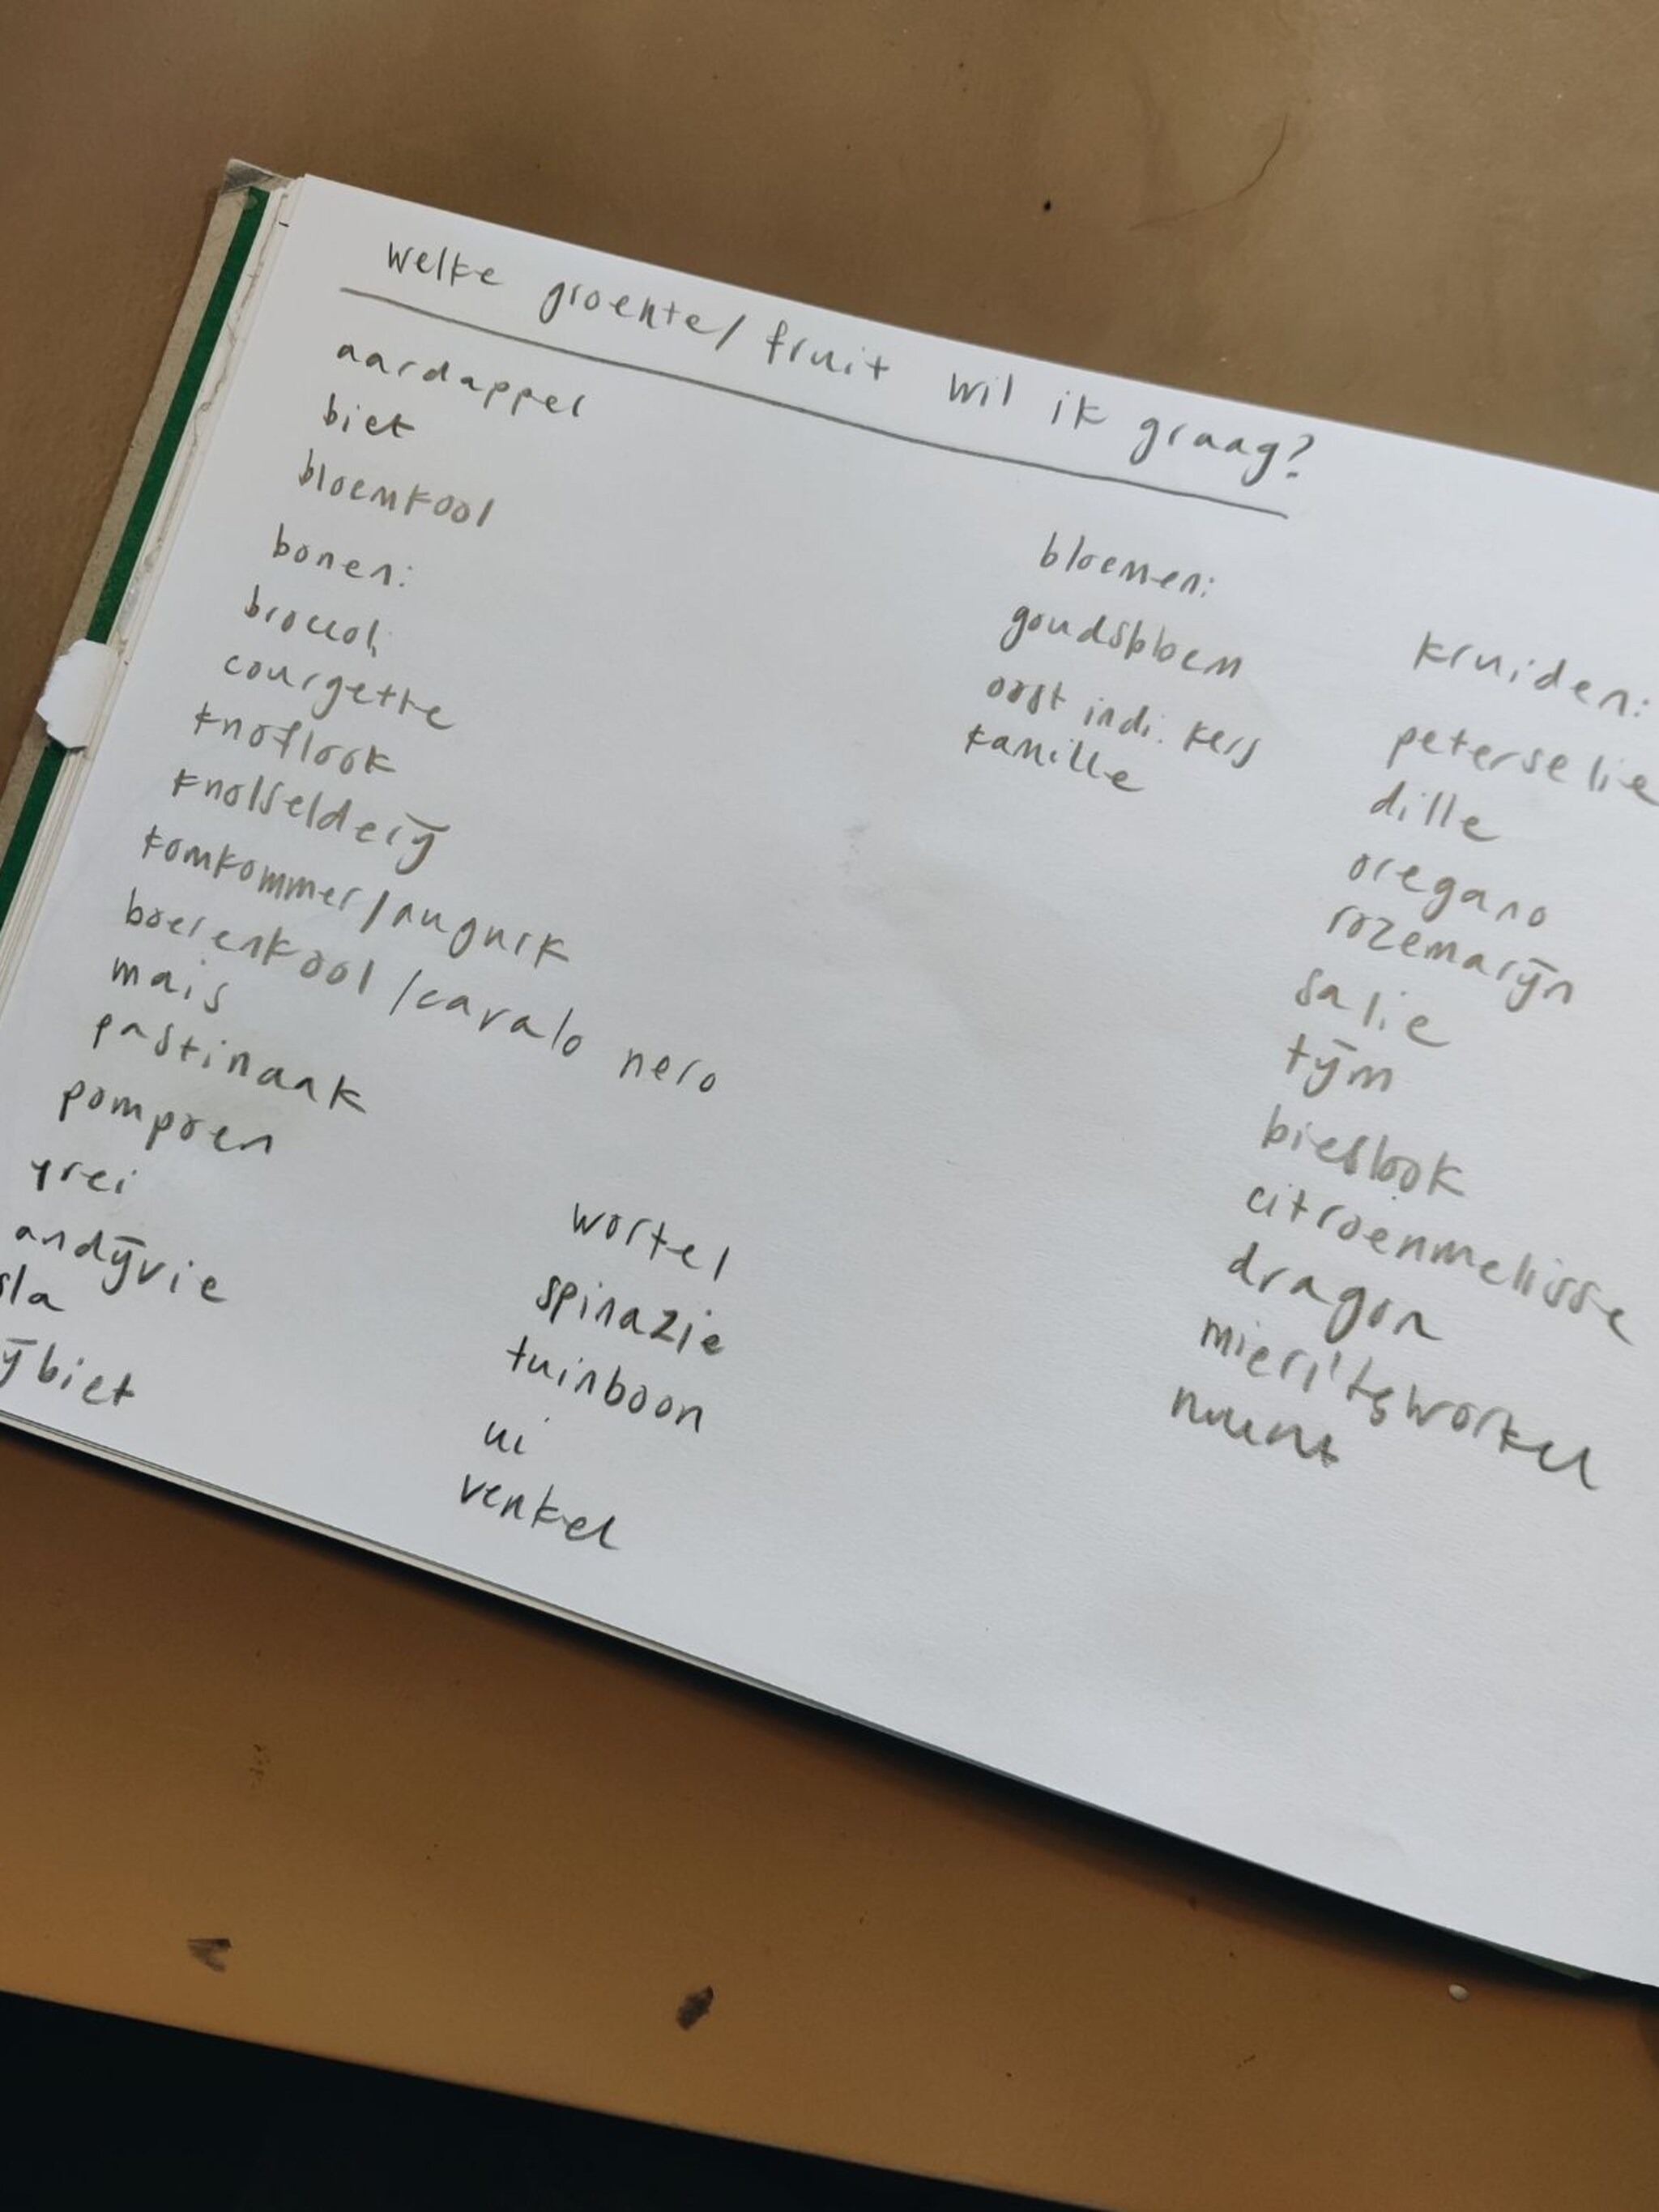 welke groente/fruit wil ik graag?
aardappel
biet
bloemkool
bonen:
broccoli
courgette
knoflook
knolselderij
komkommer/augurk
boerenkool/cavalo nero
mais
pastinaak
pompoen
prei
andijvie
sla
ijbiet
wortel
spinazie
tuinboon
ui
venkel
bloemen:
goudsbloem
oost indi. kers
kamille
kruiden:
peterselie
dille
oregano
rozemarijn
salie
tijm
bieslook
citroenmelisse
dragon
mierikswortel
munt